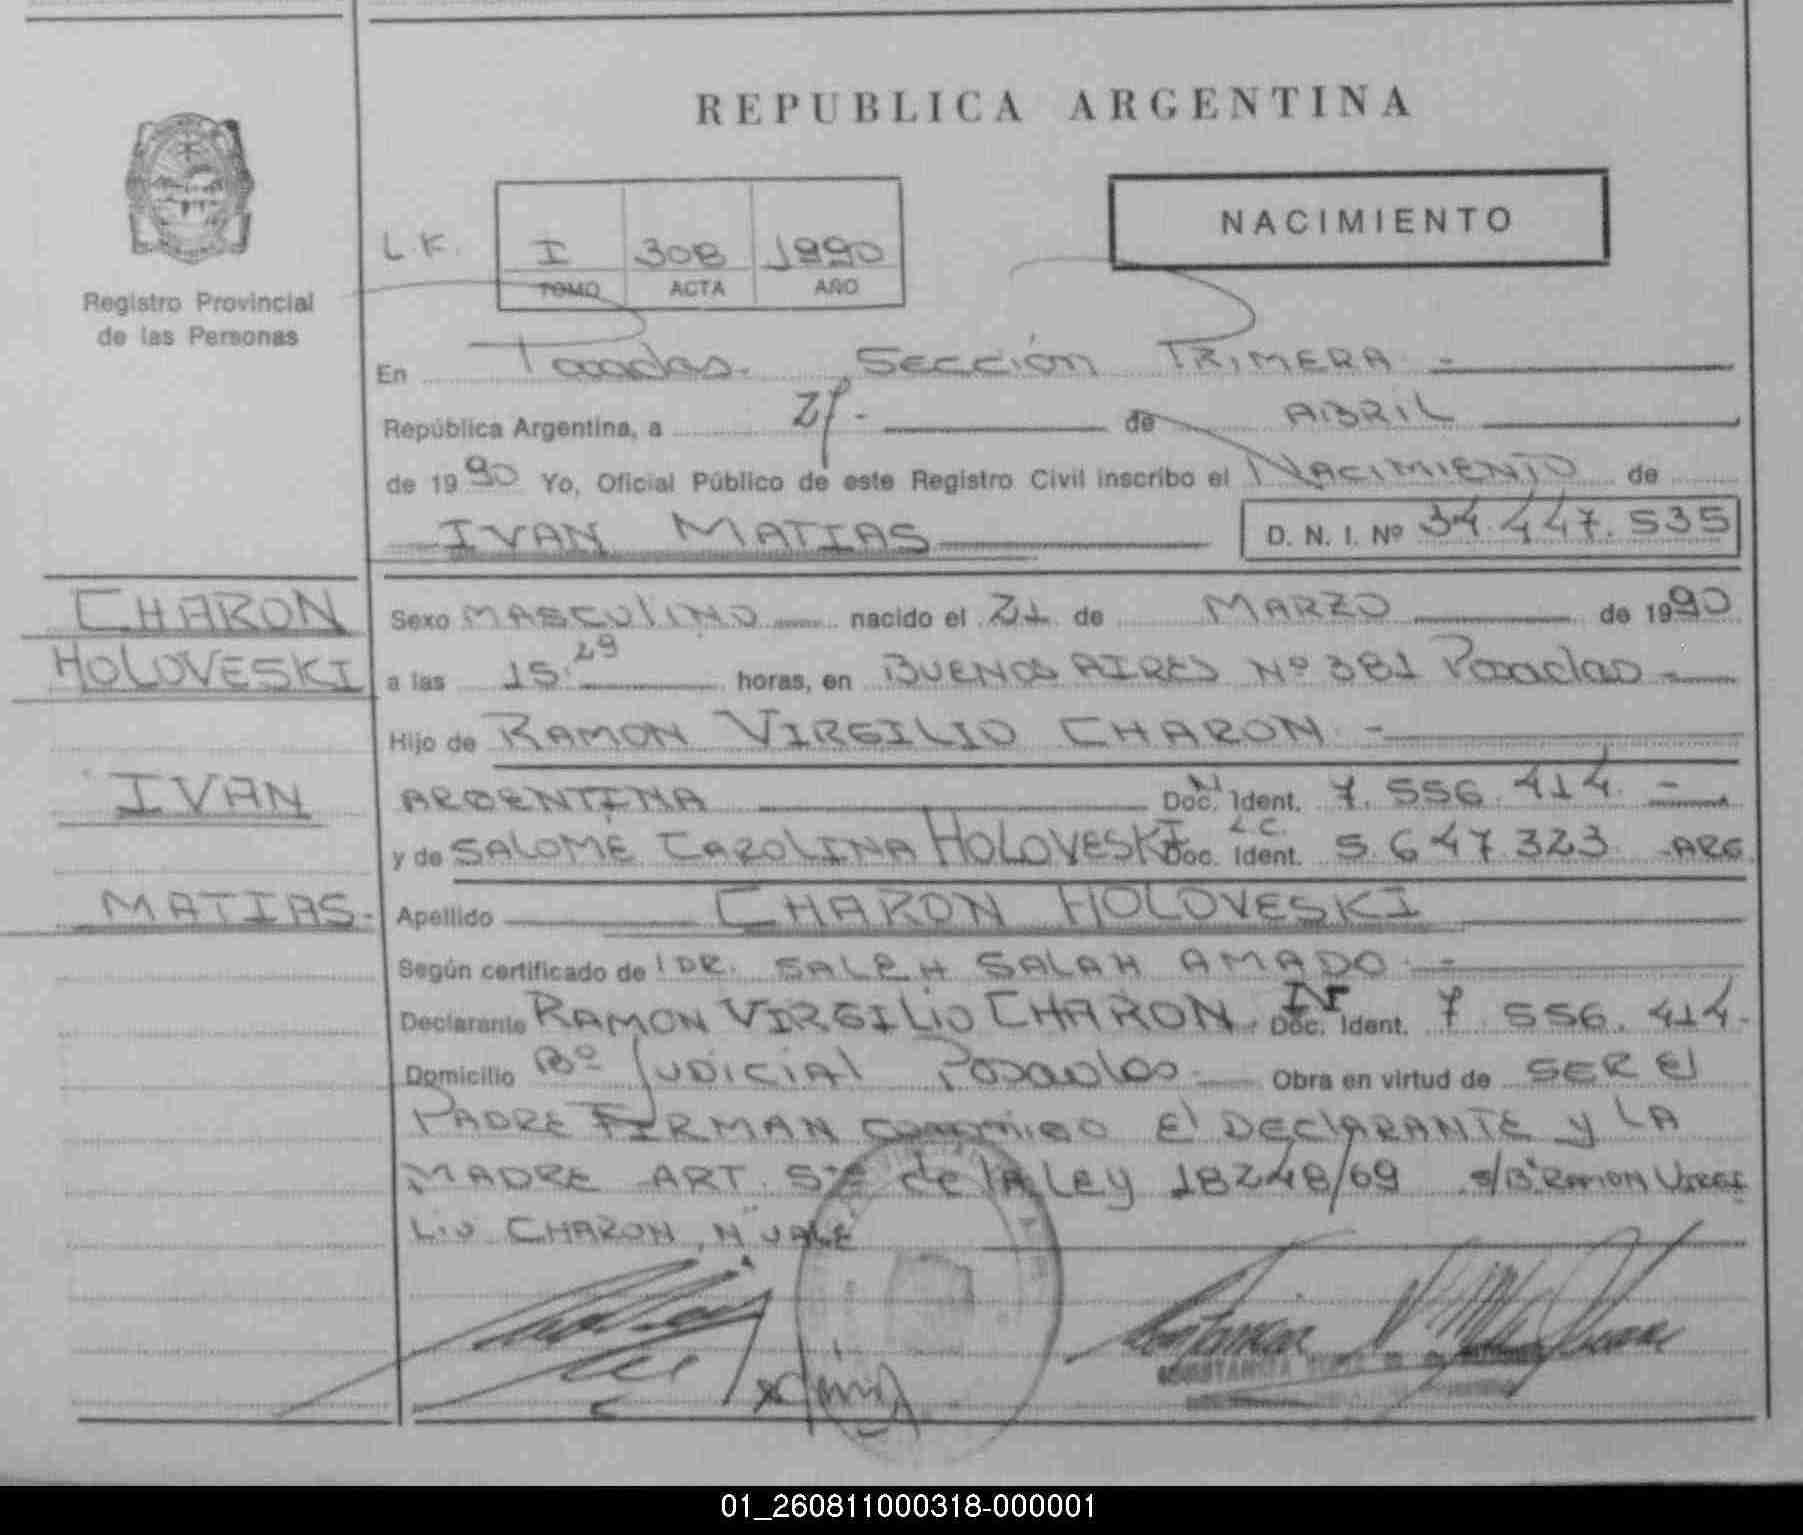 REPUBLICA ARGENTINA
NACIMIENTO
Registro Provincial
de las Personas
L.F.
I 308 1990
TOMO ACTA AÑO
En Posadas. Sección PRIMERA
República Argentina, a de ABRIL
de 1990 Yo, Oficial Público de este Registro Civil inscribo el NACIMIENTO de
IVAN MATIAS D. N. I. Nº 34.447.535
CHARON
HOLOVESKI
IVAN
MATIAS.
Sexo MASCULINO nacido el 21 de MARZO de 1990
a las 15.29 horas, en BUENOS AIRES Nº 381 Posadas
Hijo de RAMON VIRGILIO CHARON
ARGENTINA Doc. Ident. 7.556.414
y de SALOME CAROLINA HOLOVESKI L.C. Doc. Ident. 5.647.323 ARG.
Apellido CHARON HOLOVESKI
Según certificado de DR. SALEH SALAH AMADO
Declarante RAMON VIRGILIO CHARON. Doc. Ident. 7.556.414
Domicilio Bº JUDICIAL Posadas Obra en virtud de SER El
PADRE FIRMAN conmigo El DEClARANTE y LA
MADRE ART. 5º de lA Ley 18248/69 s/B. RAMON VIRGI
LIO CHARON, VALE
01_260811000318-000001